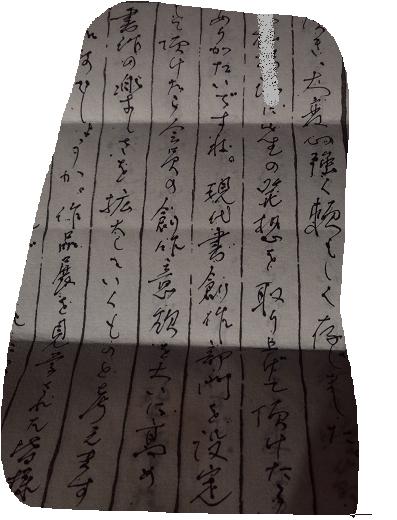 だき、大変心強く頼もしく存じました
先生の発想を取り上げて頂けたら
ありがたいですね。現代書創作部門を設定
して頂けたら会員の創作意欲を大いに高め
書作の楽しさを拡大していくものと考えます
でしょうか。作品展を見学された皆様